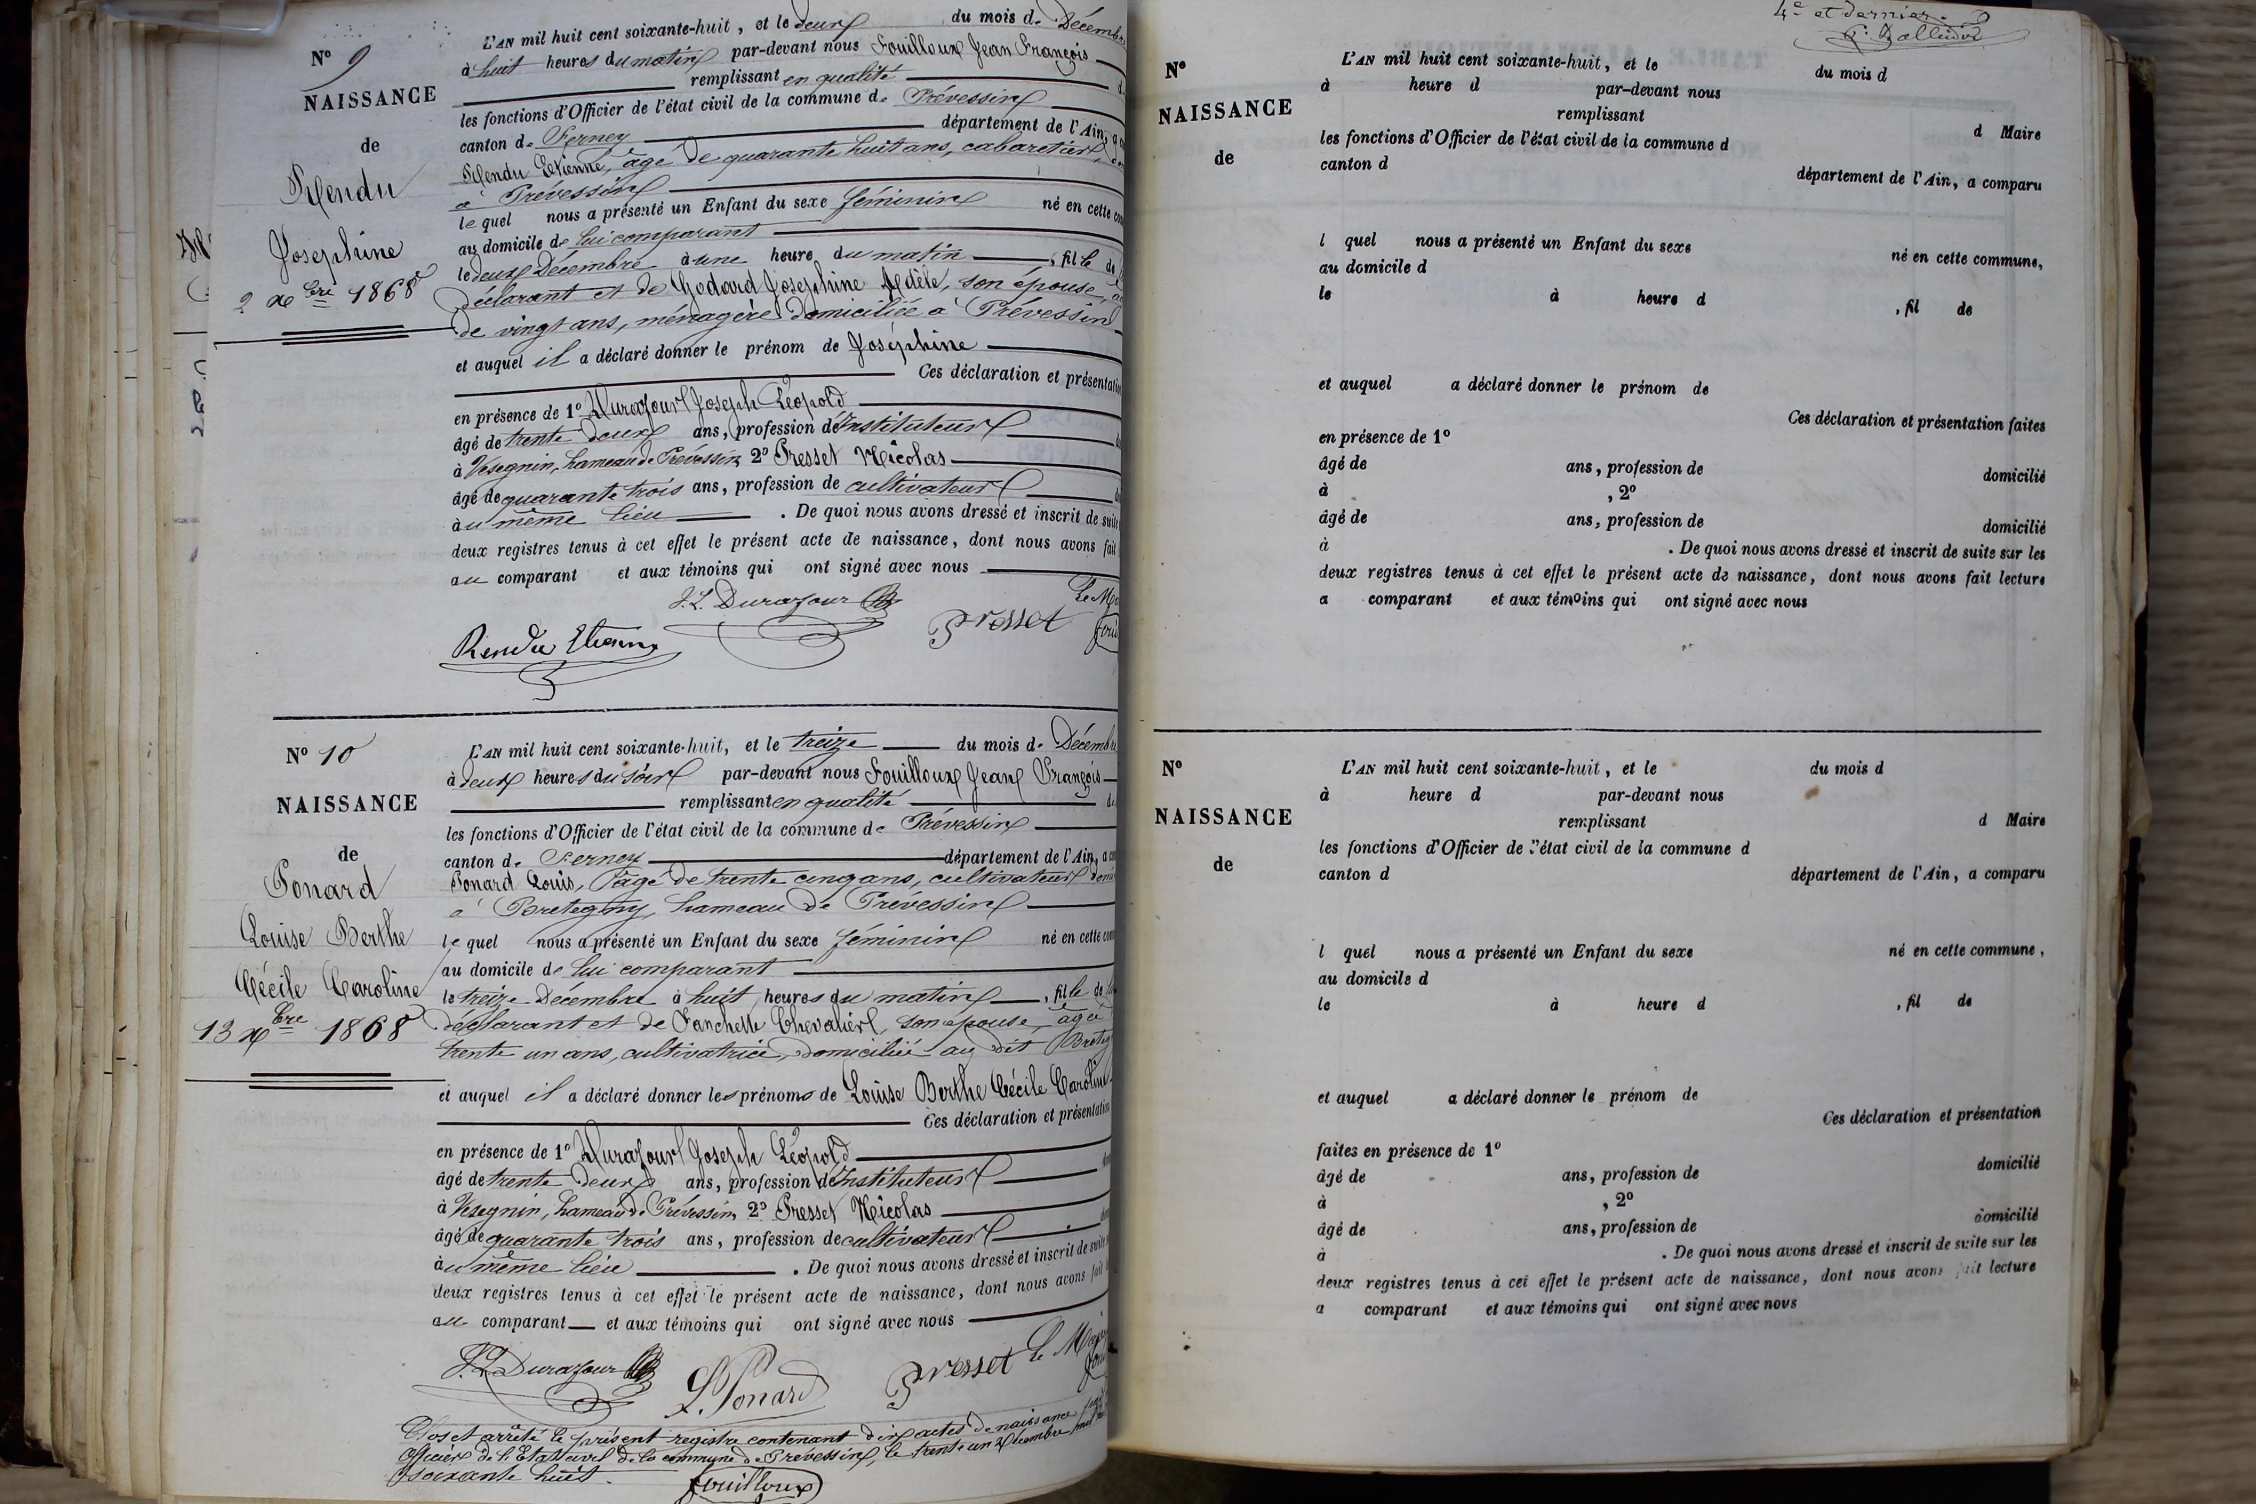 N° 9
NAISSANCE
de
Rendu
Joséphine
2 Xbre 1868
L'AN mil huit cent soixante-huit, et le deux du mois de Décembre
à huit heures du matin par-devant nous Fouilloux Jean François
remplissant en qualité
les fonctions d'Officier de l'état civil de la commune de Prévessin
canton de Ferney département de l'Ain, a
Rendu Etienne, âgé de quarante huit ans, cabaretier,
à Prévessin
lequel nous a présenté un Enfant du sexe féminin né en cette
au domicile de lui comparant
le deux Décembre à une heure du matin, fille de
déclarant et de Godard Joséphine Adèle, son épouse,
de vingt ans, ménagère domiciliée à Prévessin
et auquel il a déclaré donner le prénom de Joséphine
Ces déclaration et présentation
en présence de 1° Durafour Joseph Léopold
âgé de trente deux ans, profession d'Instituteur
à Vésegnin, hameau de Prévessin, 2° Presset Nicolas
âgé de quarante trois ans, profession de cultivateur
au même lieu. De quoi nous avons dressé et inscrit de suite
deux registres tenus à cet effet le présent acte de naissance, dont nous avons fait
au comparant et aux témoins qui ont signé avec nous
J. L. Durafour Le
Rendu Etienne Presset
N° 10
NAISSANCE
de
Ponard
Louise Berthe
Cécile Caroline
13 Xbre 1868
L'AN mil huit cent soixante-huit, et le treize du mois de Décembre
à deux heures du soir par-devant nous Fouilloux Jean François
remplissant en qualité
les fonctions d'Officier de l'état civil de la commune de Prévessin
canton de Ferney département de l'Ain, a
Ponard Louis, âgé de trente cinq ans, cultivateur
à Bretegny, hameau de Prévessin
lequel nous a présenté un Enfant du sexe féminin né en cette
au domicile de lui comparant
le treize Décembre à huit heures du matin, fille de
déclarant et de Fanchette Chevalier, son épouse, âgée
trente un ans, cultivatrice, domiciliée au dit
et auquel il a déclaré donner les prénoms de Louise Berthe Cécile Caroline
Ces déclaration et présentation
en présence de 1° Durafour Joseph Léopold
âgé de trente deux ans, profession d'Instituteur
à Vésegnin, hameau de Prévessin, 2° Presset Nicolas
âgé de quarante trois ans, profession de cultivateur
au même lieu. De quoi nous avons dressé et inscrit de suite
deux registres tenus à cet effet le présent acte de naissance, dont nous avons fait
au comparant et aux témoins qui ont signé avec nous
J. L. Durafour L. Ponard Presset Le
Clos et arrêté le présent registre contenant dix actes de naissance
Officier de l'Etat civil de la commune de Prévessin, le trente un Décembre mil
soixante huit.
Fouilloux
4e et dernier
N°
NAISSANCE
de
L'AN mil huit cent soixante-huit, et le du mois d
à heure d par-devant nous
remplissant d Maire
les fonctions d'Officier de l'état civil de la commune d
canton d département de l'Ain, a comparu
l quel nous a présenté un Enfant du sexe né en cette commune,
au domicile d
le à heure d , fil de
et auquel a déclaré donner le prénom de
Ces déclaration et présentation faites
en présence de 1°
âgé de ans, profession de domicilié
à , 2°
âgé de ans, profession de domicilié
à . De quoi nous avons dressé et inscrit de suite sur les
deux registres tenus à cet effet le présent acte de naissance, dont nous avons fait lecture
a comparant et aux témoins qui ont signé avec nous
N°
NAISSANCE
de
L'AN mil huit cent soixante-huit, et le du mois d
à heure d par-devant nous
remplissant d Maire
les fonctions d'Officier de l'état civil de la commune d
canton d département de l'Ain, a comparu
l quel nous a présenté un Enfant du sexe né en cette commune,
au domicile d
le à heure d , fil de
et auquel a déclaré donner le prénom de
Ces déclaration et présentation
faites en présence de 1°
âgé de ans, profession de domicilié
à , 2°
âgé de ans, profession de domicilié
à . De quoi nous avons dressé et inscrit de suite sur les
deux registres tenus à cet effet le présent acte de naissance, dont nous avons fait lecture
a comparant et aux témoins qui ont signé avec nous